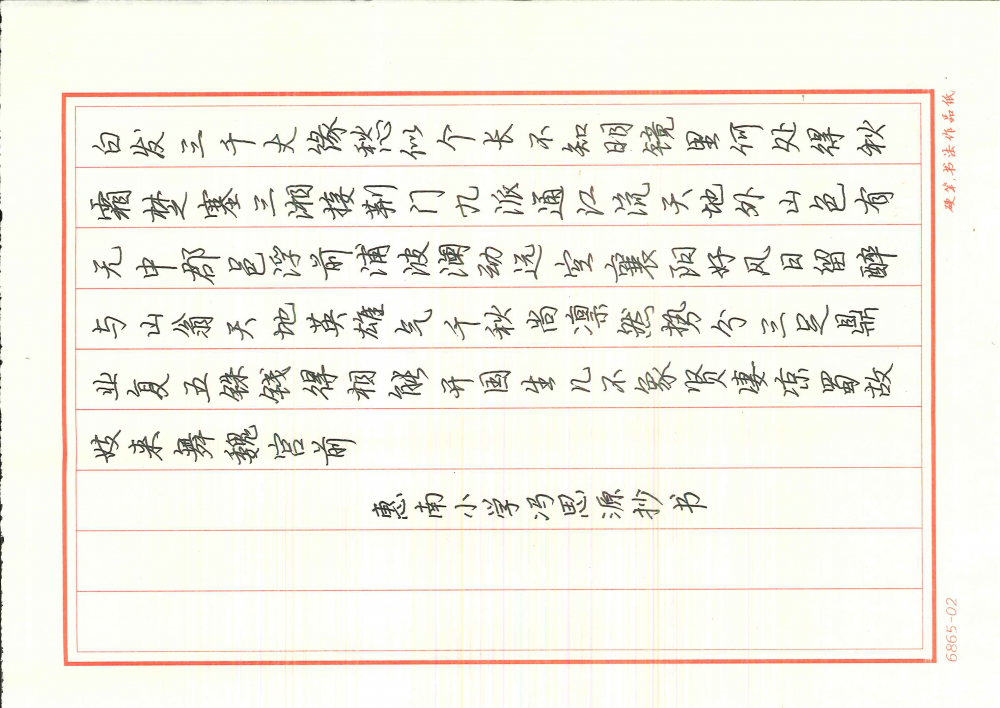 硬笔书法作品纸
白发三千丈缘愁似个长不知明镜里何处得秋
霜楚塞三湘接荆门九派通江流天地外山色有
无中郡邑浮前浦波澜动远空襄阳好风日留醉
与山翁天地英雄气千秋尚凛然势分三足鼎
业复五铢钱得相能开国生儿不象贤凄凉蜀故
妓来舞魏宫前
惠南小学冯思源抄书
6865-02